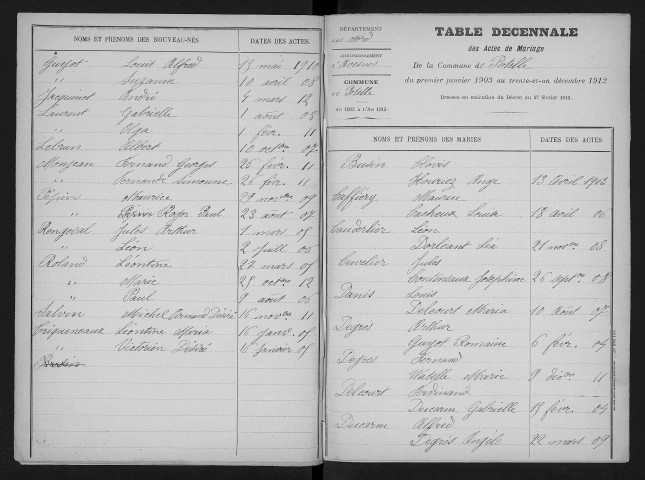 NOMS ET PRÉNOMS DES NOUVEAU-NÉS DATES DES ACTES.
Guyot Louis Alfred 13 mai 1910
" Suzanne 10 avril 08
Jacquinet André 4 mars 12
Laurent Gabrielle 1 août 08
" Olga 1 fév. 11
Lebrun Albert 10 octbre 07
Menjean Fernand Georges 25 fév. 11
" Fernande Simonne 26 fév. 11
Maurice 29 novbre 09
Paul 23 août 07
Rengeval Jules Arthur 1 mars 05
" Léon 2 juill. 06
Roland Léontine 27 mars 05
" Marie 25 octbre 12
" Paul 9 août 06
Michel Armand Désiré 16 novbre 11
Léontine Maria 16 janv. 05
" Victorien Désiré 16 janvier 05
DÉPARTEMENT
du Nord
ARRONDISSEMENT
d'Avesnes
COMMUNE
de Potelle
AN 1903 A L'AN 1912
TABLE DÉCENNALE
des Actes de Mariage
De la Commune de Potelle
du premier janvier 1903 au trente-et-un décembre 1912
Dressée en exécution du Décret du
NOMS ET PRÉNOMS DES MARIÉS DATES DES ACTES
Busin Clovis
Houriez Ange 13 Avril 1903
Caffiéry Maurice
Louisa 18 août 06
Cauderlier Léon
Dorléant Léa 21 novbre 08
Cuvelier Jules
Joséphine 26 septbre 08
Danis Louis
Delcourt Maria 10 août 07
Degrès Arthur
Guyot Romaine 6 fév. 04
Degrès Fernand
Watelle Marie 9 décbre 11
Delcourt Ferdinand
Ducarme Gabrielle 15 fév. 04
Ducarme Alfred
Degrès Angèle 22 mars 09